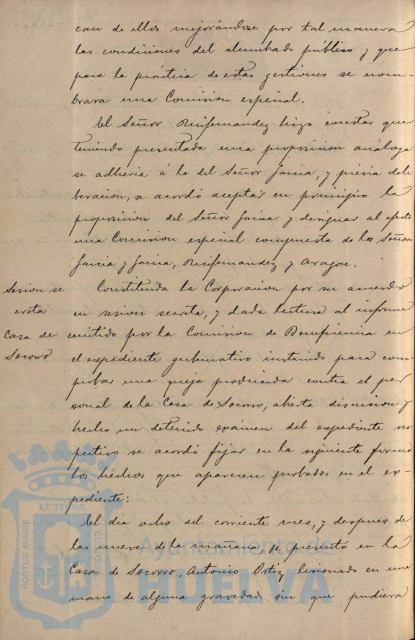 can de ellos mejorándose por tal manera
las condiciones del alumbrado público y que
para la práctica de estas gestiones se nom-
brara una Comision especial.
El Señor Ruifernandez hizo constar que
teniendo presentada una proposicion análoga
se adheria á la del Señor Jaira, y previa deli
beracion, se acordó aceptar en principio la
proposicion del Señor Jaira y designar al efecto
una Comision especial compuesta de los Señores
Garcia y Garcia, Ruifernandez y Aragon.
Sesion se
creta
Casa de
Socorro
Constituida la Corporacion por su acuerdo
en sesion secreta, y dada lectura al informe
emitido por la Comision de Beneficencia en
el expediente gubernativo instruido para com-
probar una queja producida contra el per
sonal de la Casa de Socorro, abierta discusion y
hecho un detenido exámen del expediente res
pectivo se acordó fijar en la siguiente forma
los hechos que aparecen probados en el ex-
pediente:
El dia ocho del corriente mes, y despues de
las nueve de la mañana, se presentó en la
Casa de Socorro, Antonio Ortiz lesionado en una
mano de alguna gravedad sin que pudiera
Ayuntamiento de
HUELVA
PORTUS MARIS
ET TERRAE
CUSTODIA